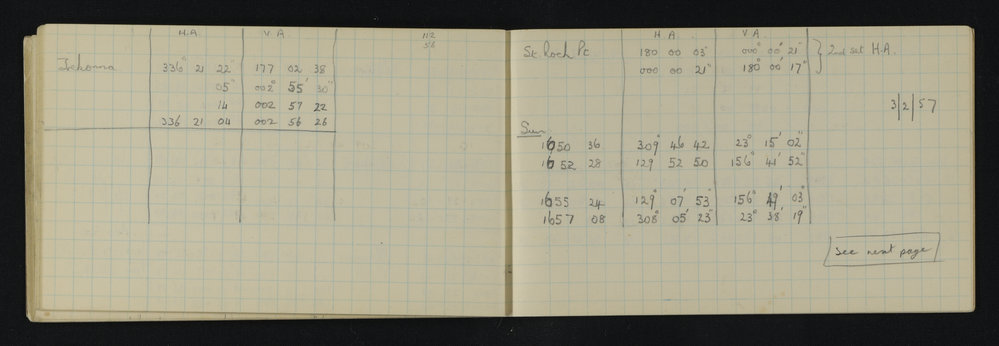 H.A. V A
112
56
336° 21 22" 177 02 38
05" 002° 55' 30"
14 002 57 22
336 21 04 002 56 26
H A V A
St. Roch Pt. 180 00 03" 000° 00' 21" } 2nd set H.A.
000 00 21" 180° 00' 17"
3/2/57
Sun
1650 36 309° 46 42 23° 15' 02"
1652 28 129 52 50 156° 41' 52"
1655 24 129° 07' 53" 156° 49' 03"
1657 08 308° 05' 23" 23° 38' 19"
See next page